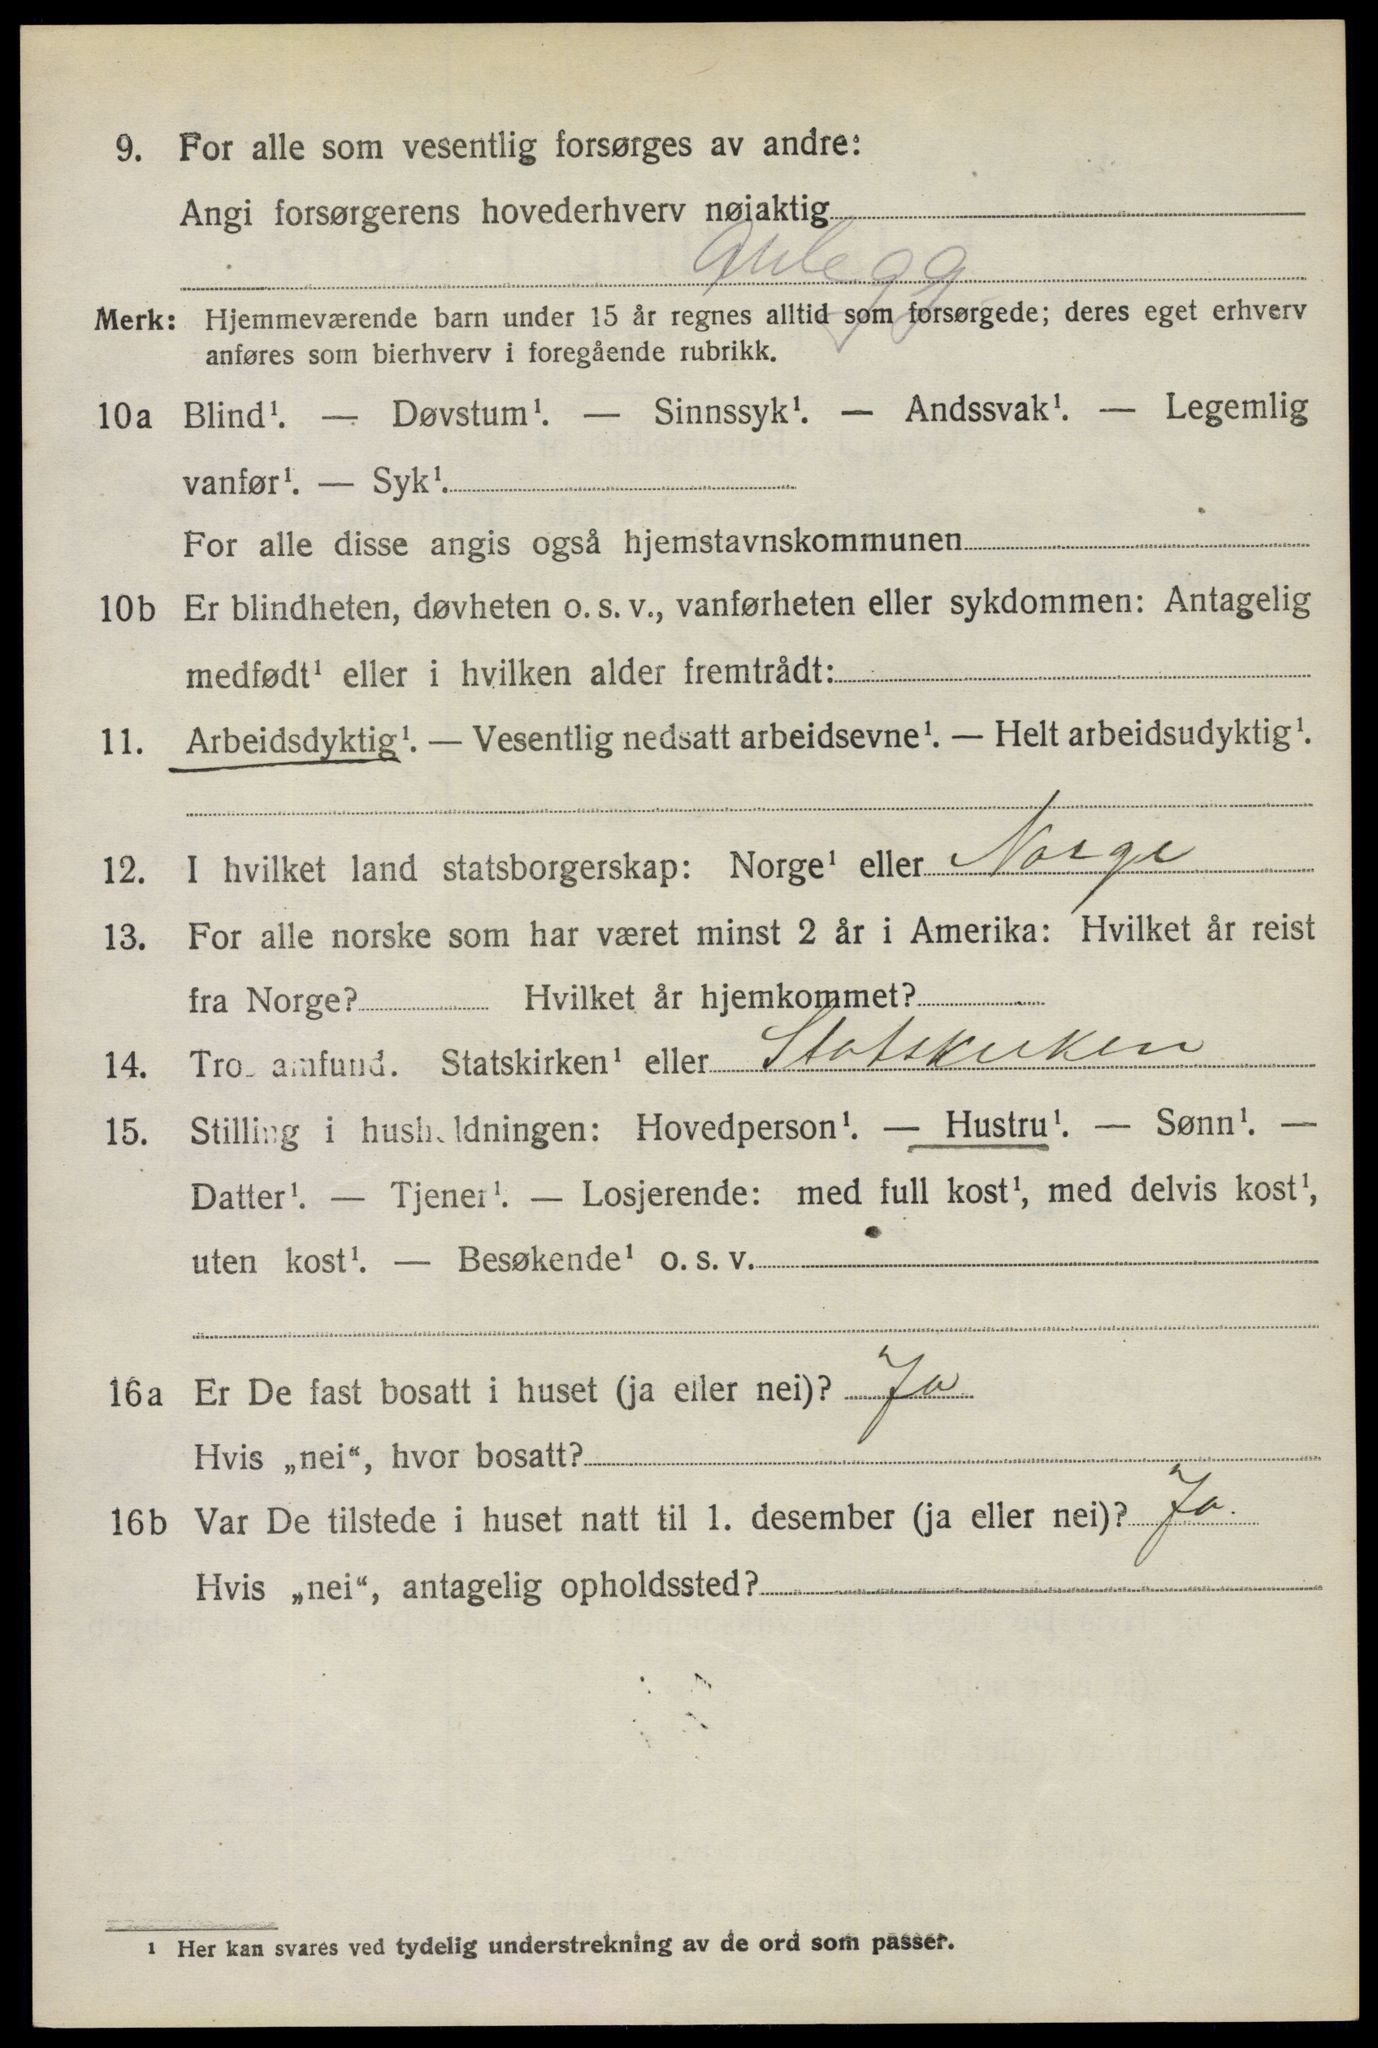 9. For alle som vesentlig forsørges av andre:
Angi forsørgerens hovederhverv nøiaktig
Anlegg
Merk: Hjemmeværende barn under 15 år regnes alltid som forsørgede; deres eget erhverv
anføres som bierhverv i foregående rubrikk.
10a Blind¹. — Døvstum¹. — Sinnssyk¹. — Andssvak¹. — Legemlig
vanfør¹. — Syk¹.
For alle disse angis også hjemstavnskommunen
10b Er blindheten, døvheten o. s. v., vanførheten eller sykdommen: Antagelig
medfødt¹ eller i hvilken alder fremtrådt:
11. Arbeidsdyktig¹. — Vesentlig nedsatt arbeidsevne¹. — Helt arbeidsudyktig¹.
12. I hvilket land statsborgerskap: Norge¹ eller Norge
13. For alle norske som har været minst 2 år i Amerika: Hvilket år reist
fra Norge? Hvilket år hjemkommet?
14. Trossamfund. Statskirken¹ eller Statskirken
15. Stilling i husholdningen: Hovedperson¹. — Hustru¹. — Sønn¹. —
Datter¹. — Tjener¹. — Losjerende: med full kost¹, med delvis kost¹,
uten kost¹. — Besøkende¹ o. s. v.
16a Er De fast bosatt i huset (ja eller nei)? Ja
Hvis „nei“, hvor bosatt?
16b Var De tilstede i huset natt til 1. desember (ja eller nei)? Ja.
Hvis „nei“, antagelig opholdssted?
¹ Her kan svares ved tydelig understrekning av de ord som passer.